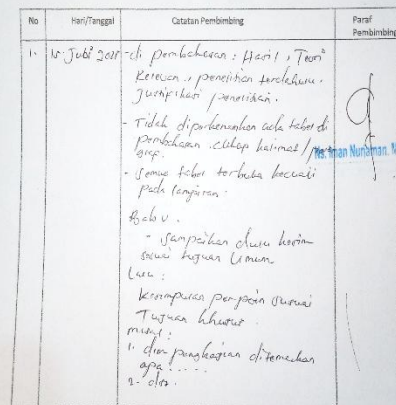 No Hari/Tanggal Catatan Pembimbing Paraf Pembimbing
1. 15 Juli - di pembahasan : Hasil, Teori²
Relevan, penelitian terdahulu.
Justifikasi penelitian.
- Tidak diperkenankan ada tabel di
pembahasan. cukup kalimat /
Ns. Iman Nurjaman, M
- semua tabel terbuka kecuali
pada lampiran.
Bab V.
- Sampaikan dulu
sesuai tujuan Umum.
Lalu :
kesimpulan per poin sesuai
Tujuan khusus.
misal :
1. dim pengkajian ditemukan
apa .....
2. dst.